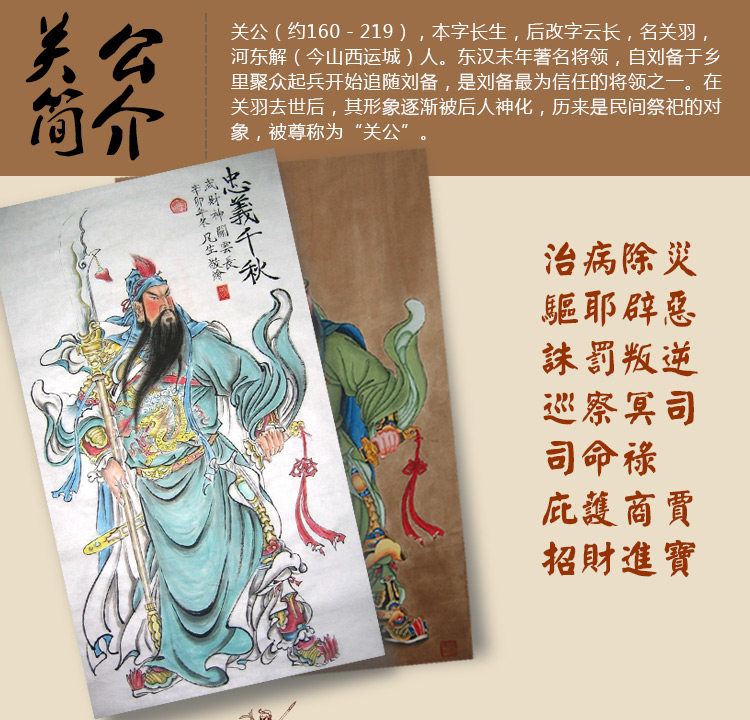 关公
简介
关公（约160－219），本字长生，后改字云长，名关羽，
河东解（今山西运城）人。东汉末年著名将领，自刘备于乡
里聚众起兵开始追随刘备，是刘备最为信任的将领之一。在
关羽去世后，其形象逐渐被后人神化，历来是民间祭祀的对
象，被尊称为“关公”。
忠義千秋
武財神關雲長
辛卯年冬凡生敬繪
治病除災
驅耶辟惡
誅罰叛逆
巡察冥司
司命祿
庇護商賈
招財進寶